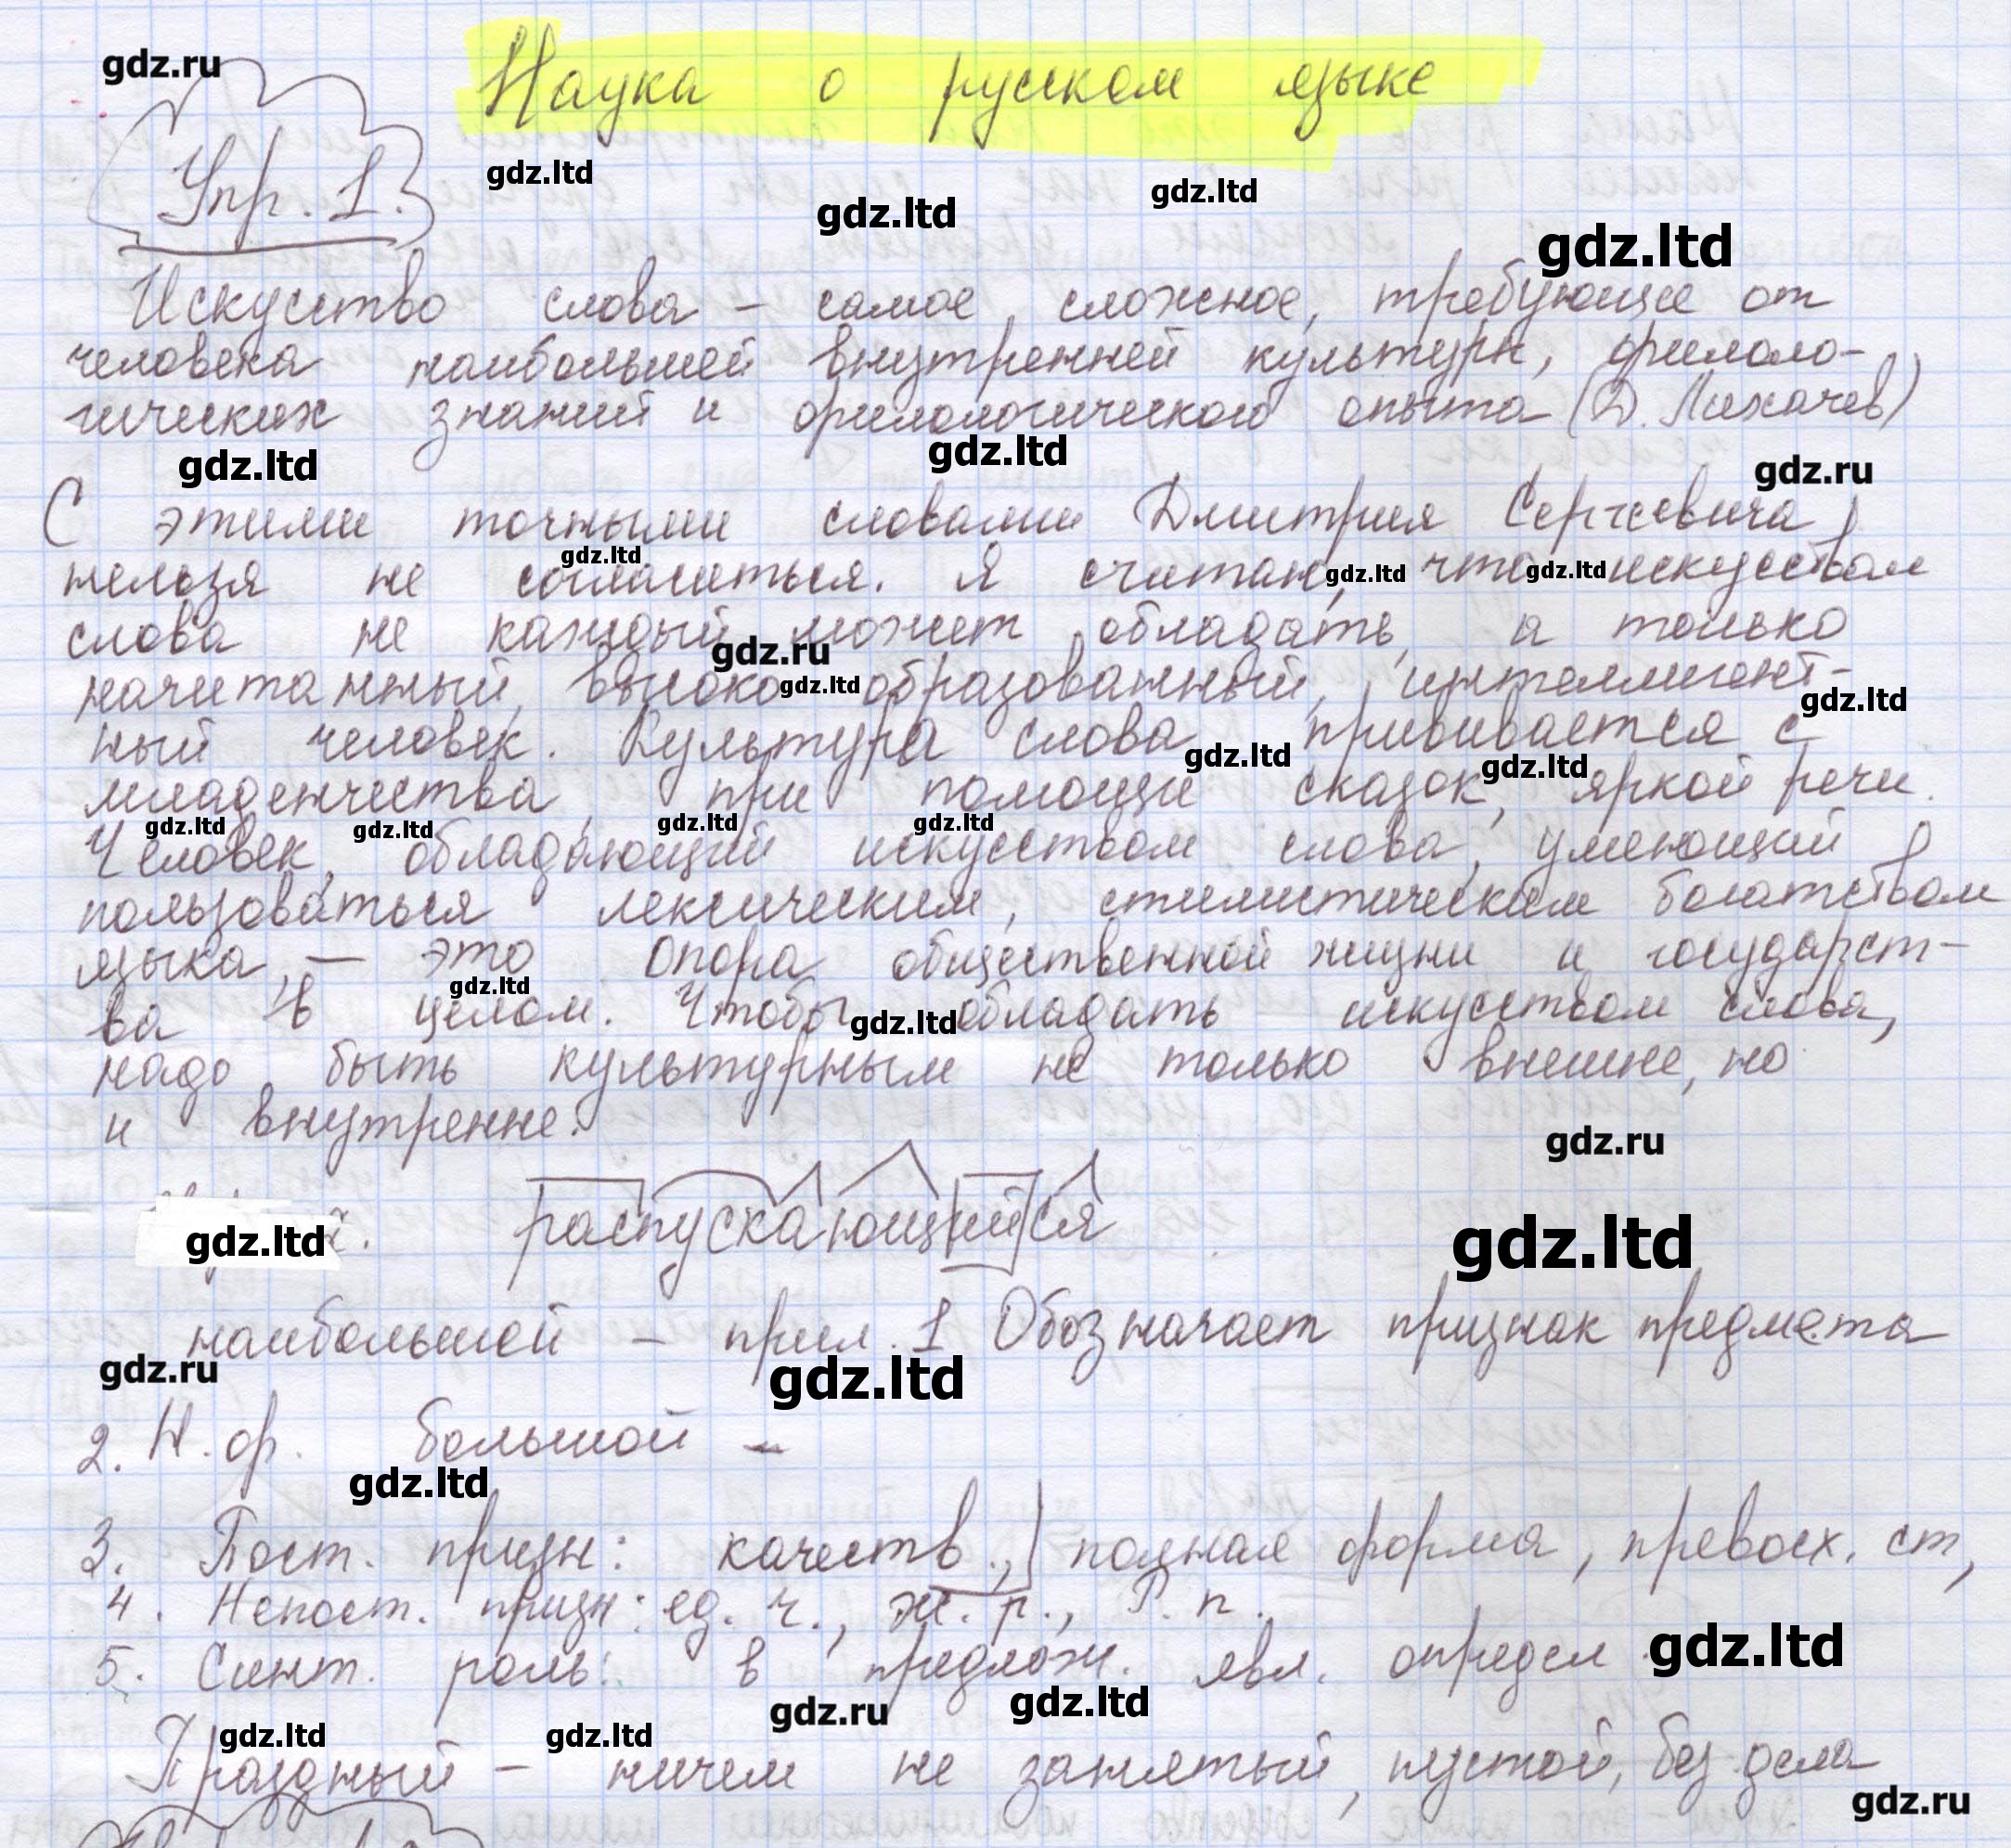 gdz.ru
Наука о русском языке
Упр. 1.
gdz.ltd
gdz.ltd
gdz.ltd
gdz.ltd
Искусство слова – самое сложное, требующее от
человека наибольшей внутренней культуры, филоло-
гических знаний и филологического опыта (Д. Лихачев)
gdz.ltd
gdz.ltd
gdz.ru
С этими точными словами Дмитрия Сергеевича
gdz.ltd
gdz.ltd
gdz.ltd
нельзя не согласиться. Я считаю, что искусством
слова не каждый может обладать, а только
gdz.ru
gdz.ltd
начитанный, высокообразованный, интеллигент-
gdz.ltd
ный человек. Культура слова прививается с
gdz.ltd
gdz.ltd
младенчества, при помощи сказок, яркой речи.
gdz.ltd
gdz.ltd
gdz.ltd
gdz.ltd
Человек, обладающий искусством слова, умеющий
пользоваться лексическим, стилистическим богатством
языка, – это опора общественной жизни и государст-
gdz.ltd
ва в целом. Чтобы обладать искусством слова,
gdz.ltd
надо быть культурным не только внешне, но
и внутренне.
gdz.ru
gdz.ltd
2. распускающийся
gdz.ltd
наибольшей – прил. 1 Обозначает признак предмета
gdz.ru
gdz.ltd
2. Н. ф. большой –
gdz.ltd
3. Пост. призн: качеств., полная форма, превосх. ст,
4. Непост. призн: ед. ч., ж. р., Р. п.
5. Синт. роль: в предлож. явл. определ.
gdz.ltd
gdz.ru
gdz.ltd
gdz.ltd
gdz.ltd
Праздный – ничем не занятый, пустой, без дела
gdz.ru